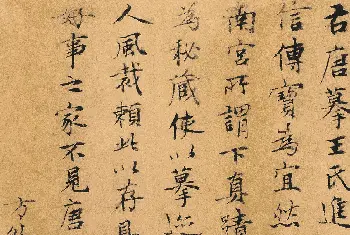 右唐摹王氏進
信傳寶為宜然
南宮所謂下真蹟
為秘藏使以摹迹
人風裁賴此以存具
好事之家不見唐
方